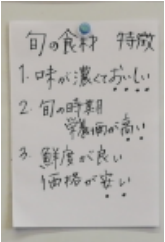 旬の食材 特徴
1. 味が濃くておいしい
2. 旬の時期
栄養価が高い
3. 鮮度が良い
価格が安い